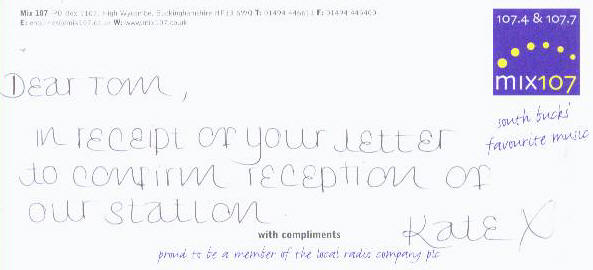 Mix 107 PO Box 1107, High Wycombe, Buckinghamshire HP13 6WQ T: 01494 446611 F: 01494 445400
E: W: www.mix107.co.uk
107.4 & 107.7
mix107
south bucks'
favourite music
Dear Tom,
in receipt of your letter
to confirm reception of
our station.
Kate X
with compliments
proud to be a member of the local radio company plc